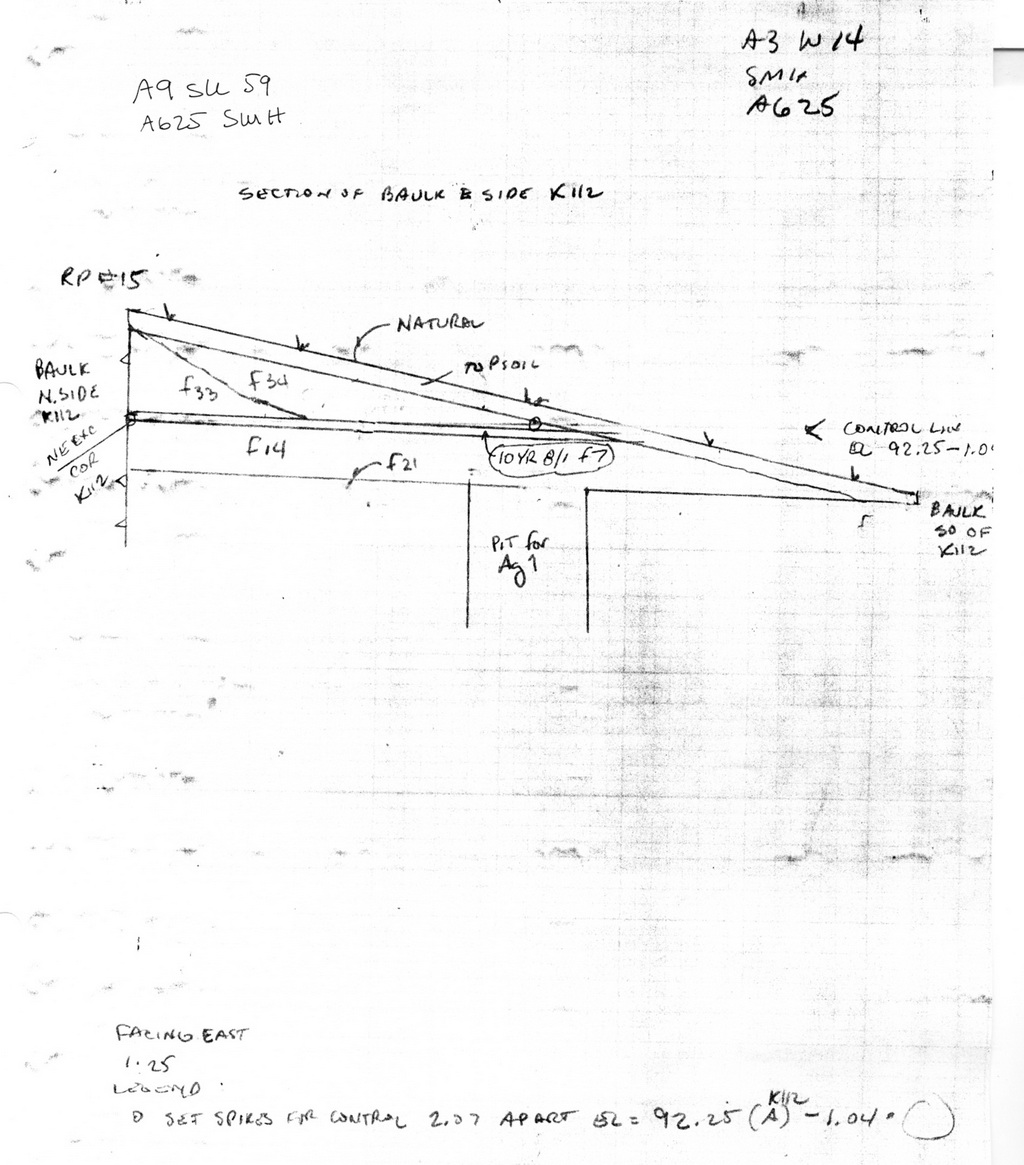 A3 W 14
SMH
A625
A9 SK 59
A625 SMH
SECTION OF BAULK E SIDE K112
RP #15
NATURAL
TOPSOIL
BAULK
N. SIDE
K112
f33
f34
CONTROL LIN
EL 92.25-1.0
NE EXC
COR
K112
f14
10YR 8/1 f7
f21
BAULK
SO OF
K112
PIT for
Ag 1
FACING EAST
1.25
LEGEND
O SET SPIKES FOR CONTROL 2.07 APART EL = 92.25 (A) K112 - 1.04 =